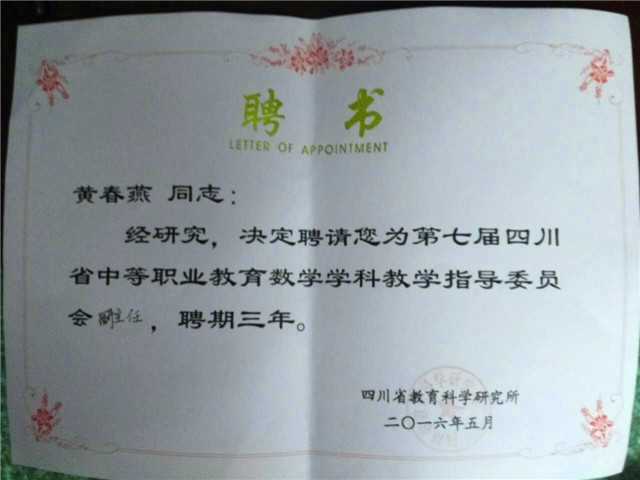 聘 书
LETTER OF APPOINTMENT
黄春燕 同志：
经研究，决定聘请您为第七届四川
省中等职业教育数学学科教学指导委员
会副主任，聘期三年。
四川省教育科学研究所
二〇一六年五月